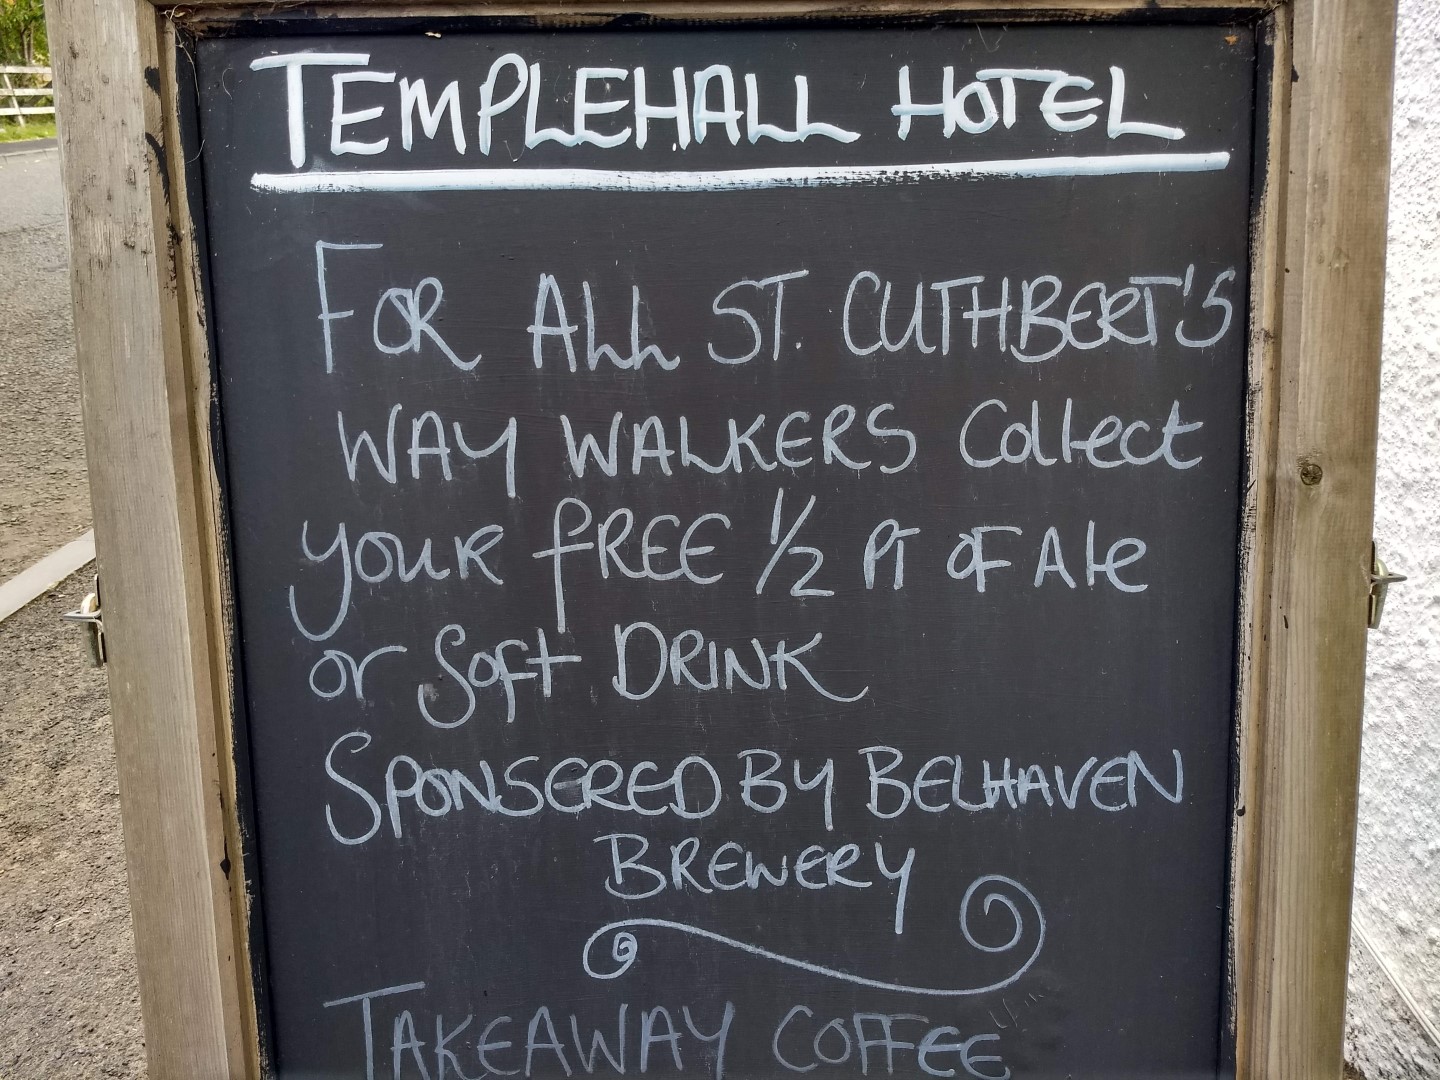 TEMPLEHALL HOTEL
FOR ALL ST. CUTHBERT'S
WAY WALKERS Collect
your fREE 1/2 PT OF Ale
or Soft DRINK
SPONSERED BY BELHAVEN
BREWERY
TAKEAWAY COFFEE